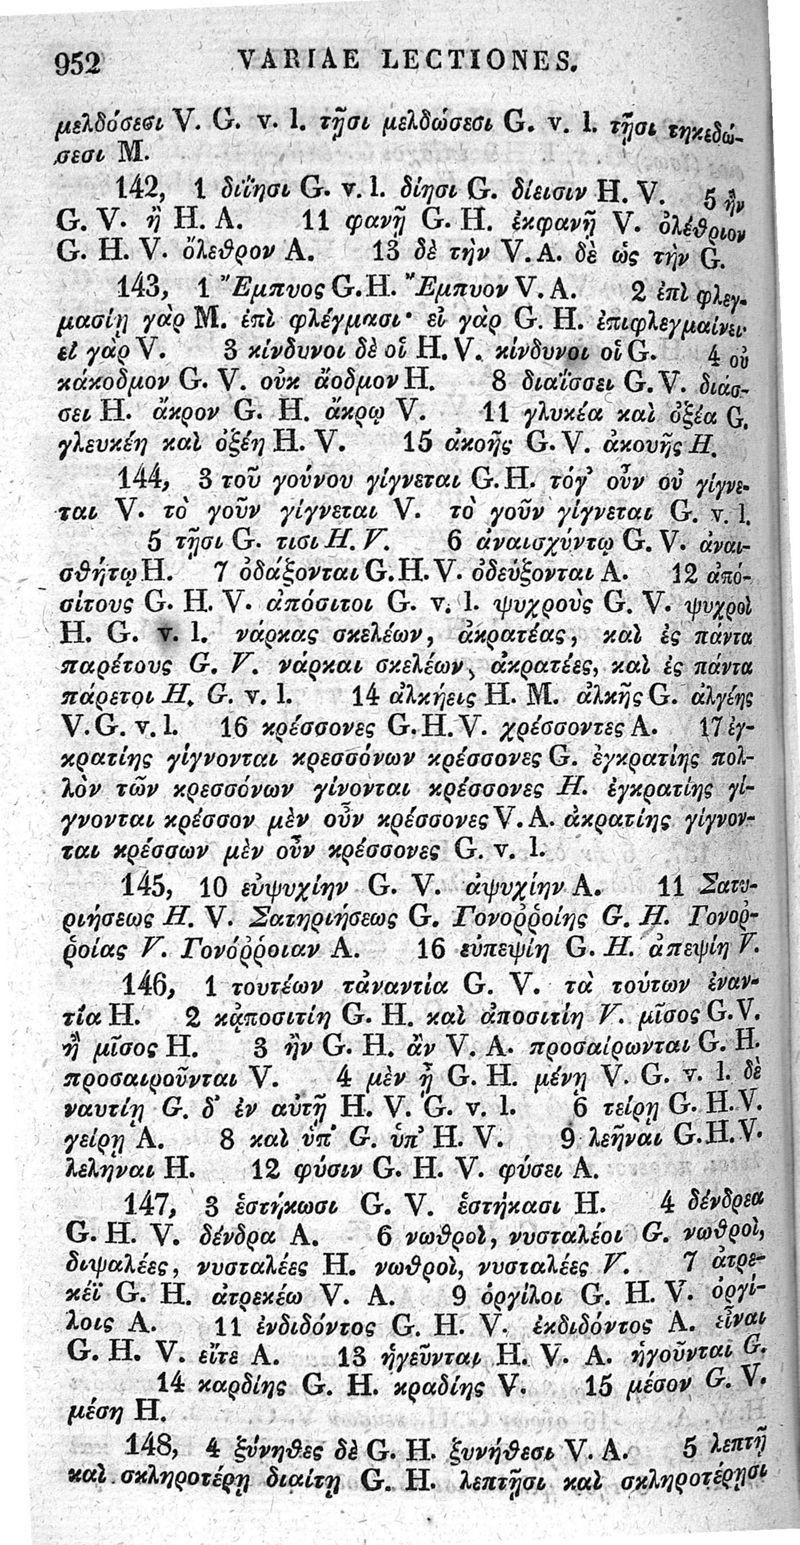 952 VARIAE LECTIONES.
μελδόσεσι V. G. v. l. τῇσι μελδώσεσι G. v. l. τῇσι τηκεδώ-
σεσι M.
142, 1 διΐησι G. v. l. δίησι G. δίεισιν H. V. 5 ἢν
G. V. ἢ H. A. 11 φανῇ G. H. ἐκφανῇ V. ὀλέθριον
G. H. V. ὄλεθρον A. 13 δὲ τὴν V. A. δὲ ὡς τὴν G.
143, 1 Ἔμπυος G. H. Ἔμπυον V. A. 2 ἐπὶ φλεγ-
μασίῃ γὰρ M. ἐπὶ φλέγμασι· εἰ γὰρ G. H. ἐπιφλεγμαίνει·
εἰ γὰρ V. 3 κίνδυνοι δὲ οἱ H. V. κίνδυνοι οἱ G. 4 οὐ
κάκοδμον G. V. οὐκ ἄοδμον H. 8 διαΐσσει G. V. διάσ-
σει H. ἄκρον G. H. ἄκρῳ V. 11 γλυκέα καὶ ὀξέα G.
γλευκέη καὶ ὀξέη H. V. 15 ἀκοῆς G. V. ἀκουῆς H.
144, 3 τοῦ γούνου γίγνεται G. H. τόγ' οὖν οὐ γίγνε-
ται V. τὸ γοῦν γίγνεται V. τὸ γοῦν γίγνεται G. v. l.
5 τῇσι G. τισι H. V. 6 ἀναισχύντῳ G. V. ἀναι-
σθήτῳ H. 7 ὀδάξονται G. H. V. ὀδεύξονται A. 12 ἀπό-
σίτους G. H. V. ἀπόσιτοι G. v. l. ψυχροὺς G. V. ψυχροὶ
H. G. v. l. νάρκας σκελέων, ἀκρατέας, καὶ ἐς πάντα
παρέτους G. V. νάρκαι σκελέων, ἀκρατέες, καὶ ἐς πάντα
πάρετοι H. G. v. l. 14 ἀλκήεις H. M. ἀλκῆς G. ἀλγέης
V. G. v. l. 16 κρέσσονες G. H. V. χρέσσοντες A. 17 ἐγ-
κρατίης γίγνονται κρεσσόνων κρέσσονες G. ἐγκρατίης πολ-
λὸν τῶν κρεσσόνων γίνονται κρέσσονες H. ἐγκρατίης γί-
γνονται κρέσσον μὲν οὖν κρέσσονες V. A. ἀκρατίης γίγνον-
ται κρέσσων μὲν οὖν κρέσσονες G. v. l.
145, 10 εὐψυχίην G. V. ἀψυχίην A. 11 Σατυ-
ριήσεως H. V. Σατηριήσεως G. Γονοῤῥοίης G. H. Γονοῤ-
ῥοίας V. Γονόῤῥοιαν A. 16 εὐπεψίη G. H. ἀπεψίη V.
146, 1 τουτέων τἀναντία G. V. τὰ τούτων ἐναν-
τία H. 2 κᾀποσιτίη G. H. καὶ ἀποσιτίη V. μῖσος G. V.
ἢ μῖσος H. 3 ἢν G. H. ἂν V. A. προσαίρωνται G. H.
προσαιροῦνται V. 4 μὲν ᾖ G. H. μένῃ V. G. v. l. δὲ
ναυτίη G. δ' ἐν αὐτῇ H. V. G. v. l. 6 τείρῃ G. H. V.
γείρῃ A. 8 καὶ ὑπ' G. ὑπ' H. V. 9 λεῆναι G. H. V.
λεληναι H. 12 φύσιν G. H. V. φύσει A.
147, 3 ἑστήκωσι G. V. ἑστήκασι H. 4 δένδρεα
G. H. V. δένδρα A. 6 νωθροὶ, νυσταλέοι G. νωθροὶ,
διψαλέες, νυσταλέες H. νωθροὶ, νυσταλέες V. 7 ἀτρε-
κέϊ G. H. ἀτρεκέω V. A. 9 ὀργίλοι G. H. V. ὀργί-
λοις A. 11 ἐνδιδόντος G. H. V. ἐκδιδόντος A. εἶναι
G. H. V. εἴτε A. 13 ἡγεῦνται H. V. A. ἡγοῦνται G.
14 καρδίης G. H. κραδίης V. 15 μέσον G. V.
μέση H.
148, 4 ξύνηθες δὲ G. H. ξυνήθεσι V. A. 5 λεπτῇ
καὶ σκληροτέρῃ διαίτῃ G. H. λεπτῇσι καὶ σκληροτέρῃσι